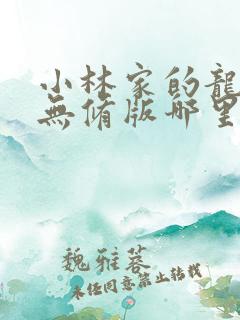 小林家的龍
無修版哪里
魏雅蓉
未经同意禁止转载